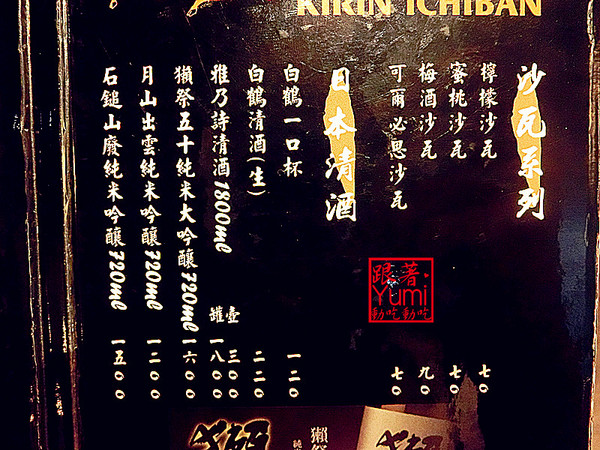 KIRIN ICHIBAN
沙瓦系列
檸檬沙瓦 七〇
蜜桃沙瓦 七〇
梅酒沙瓦 九〇
可爾必思沙瓦 七〇
日本清酒
白鶴一口杯 一二〇
白鶴清酒(生) 二二〇
雅乃詩清酒1800ml 壺 三〇〇 罐 一八〇〇
獺祭五十純米大吟釀720ml 一六〇〇
月山出雲純米吟釀720ml 一二〇〇
石鎚山廢純米吟釀720ml 一五〇〇
跟著
Yumi
動吃動吃
獺祭
純